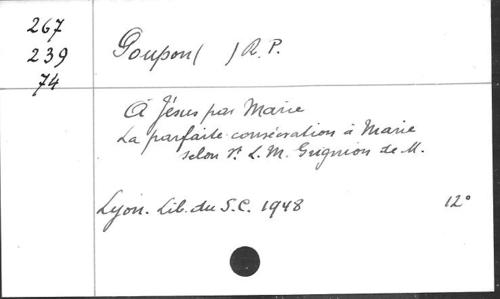 267
239
74
Goupon( ) R.P.
À Jésus par Marie
La parfaite consécration à Marie
selon St L. M. Grignion de M.
Lyon. Lib. du S.C. 1948 12°